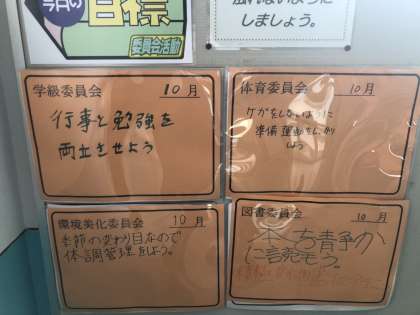 今日の
目標
委員会活動
しましょう。
学級委員会 10月
行事と勉強を
両立させよう
体育委員会 10月
ケガをしないように
準備運動をしっかり
しよう
環境美化委員会 10月
季節の変わり目なので
体調管理をしよう。
図書委員会 10月
本を静か
に読もう。